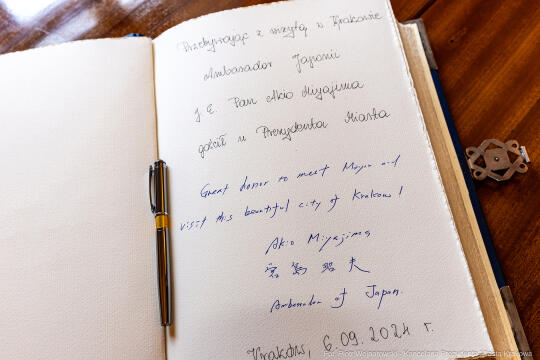 Przebywając z wizytą w Krakowie
Ambasador Japonii
J. E. Pan Akio Miyajima
gościł u Prezydenta Miasta
Great honor to meet Mayor and
visit this beautiful city of Krakow!
Akio Miyajima
宮島昭夫
Ambassador of Japan.
Kraków, 6.09.2024 r.
Fot. Piotr Wojnarowski - Kancelaria Prezydenta Miasta Krakowa